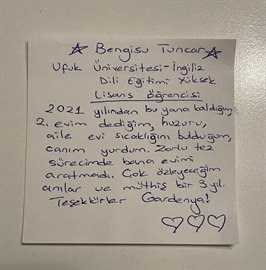 Bengisu Tuncar
Ufuk Üniversitesi-İngiliz
Dili Eğitimi Yüksek
Lisans öğrencisi
2021 yılından bu yana kaldığım,
2. evim dediğim, huzuru,
aile evi sıcaklığını bulduğum,
canım yurdum. Zorlu tez
sürecimde bana evimi
aratmadı. Çok özleyeceğim
anılar ve müthiş bir 3 yıl.
Teşekkürler Gardenya!